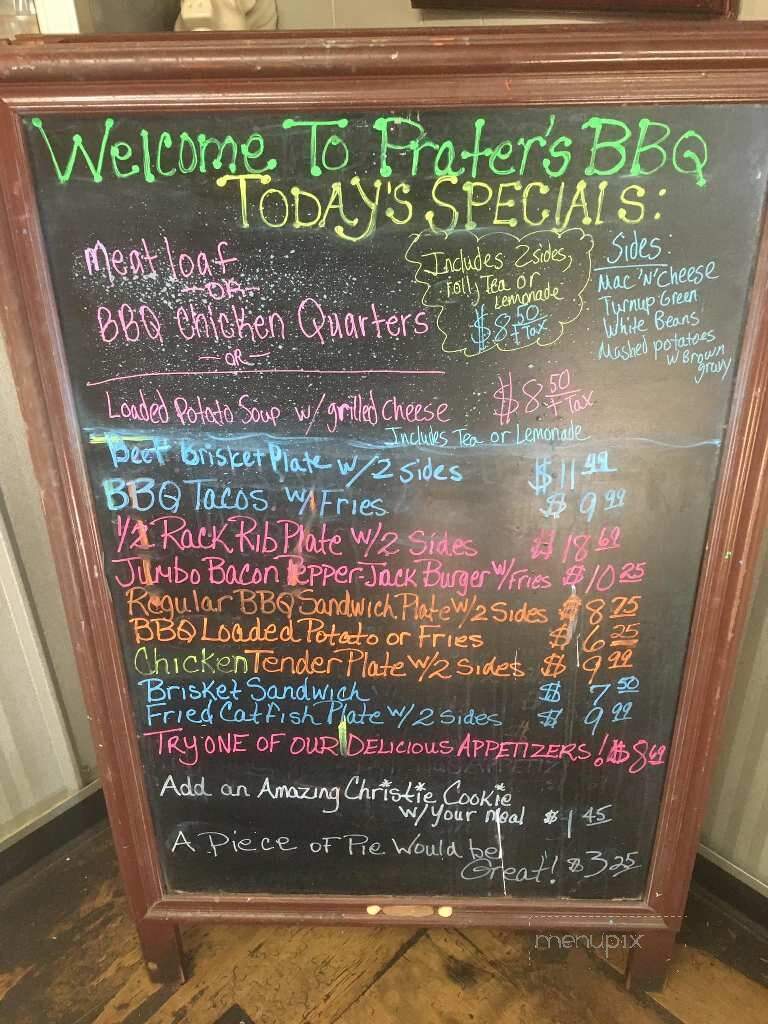 Welcome To Prater's BBQ
TODAY'S SPECIALS:
Meat loaf
-OR-
BBQ Chicken Quarters
-OR-
Includes 2 sides,
roll, Tea or
Lemonade
$8.50
+Tax
Sides:
Mac 'N' Cheese
Turnup Green
White Beans
Mashed potatoes
w Brown
gravy
Loaded Potato Soup w/ grilled Cheese $8.50 + Tax
Includes Tea or Lemonade
Beef Brisket Plate w/ 2 sides $11.49
BBQ Tacos w/ Fries $9.99
1/2 Rack Rib Plate w/ 2 Sides $18.69
Jumbo Bacon Pepper-Jack Burger w/ Fries $10.25
Regular BBQ Sandwich Plate w/ 2 Sides $8.75
BBQ Loaded Potato or Fries $6.25
Chicken Tender Plate w/ 2 sides $9.99
Brisket Sandwich $7.50
Fried Catfish Plate w/ 2 sides $9.99
TRY ONE OF OUR DELICIOUS APPETIZERS! $8.69
Add an Amazing Christie Cookie
w/ your meal $1.45
A Piece of Pie Would be
Great! $3.25
menupix